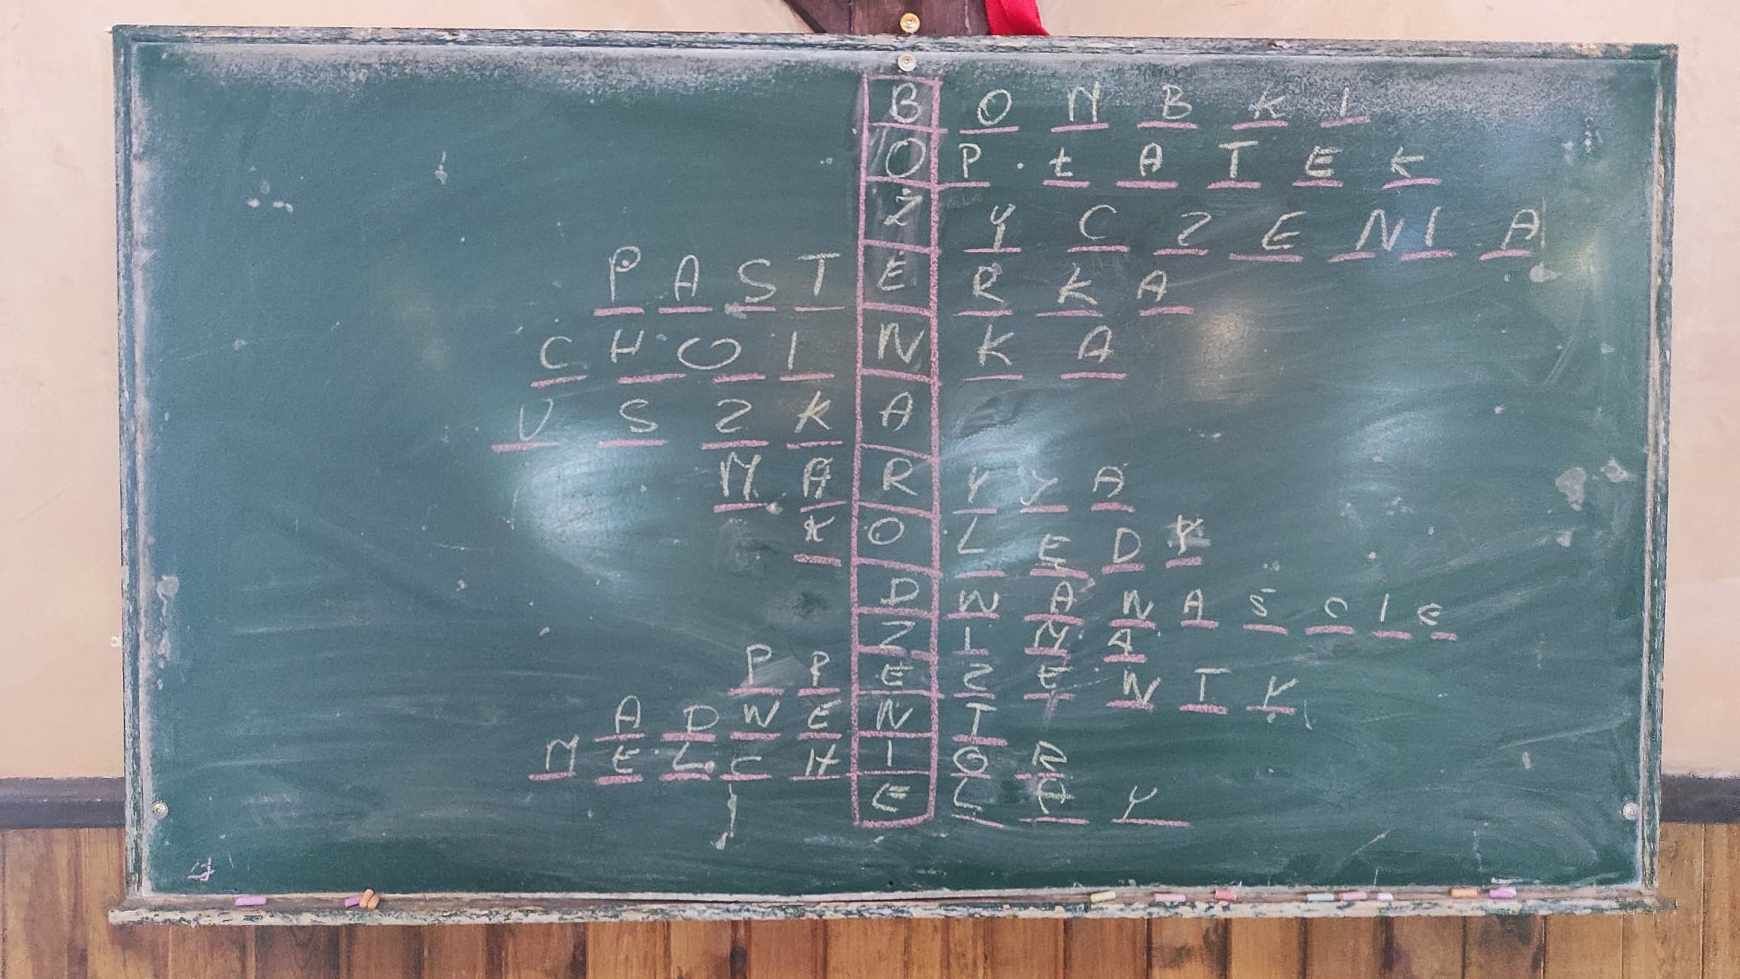 BOMBKI
OPŁATEK
ŻYCZENIA
PASTERKA
CHOINKA
USZKA
MARYJA
KOLEDY
DWANAŚCIE
ZIMA
PREZENTY
ADWENT
MELCHIOR
ELAY